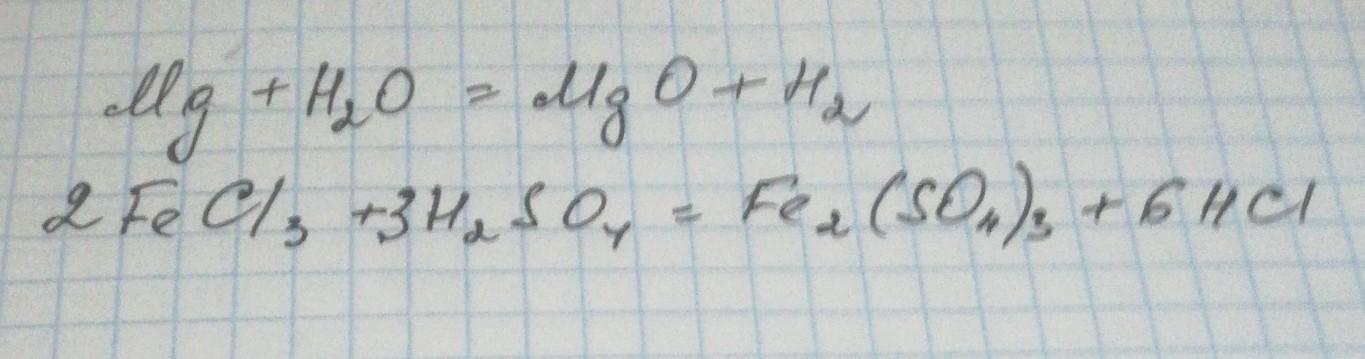 Mg + H₂O = MgO + H₂
2FeCl₃ + 3H₂SO₄ = Fe₂(SO₄)₃ + 6HCl